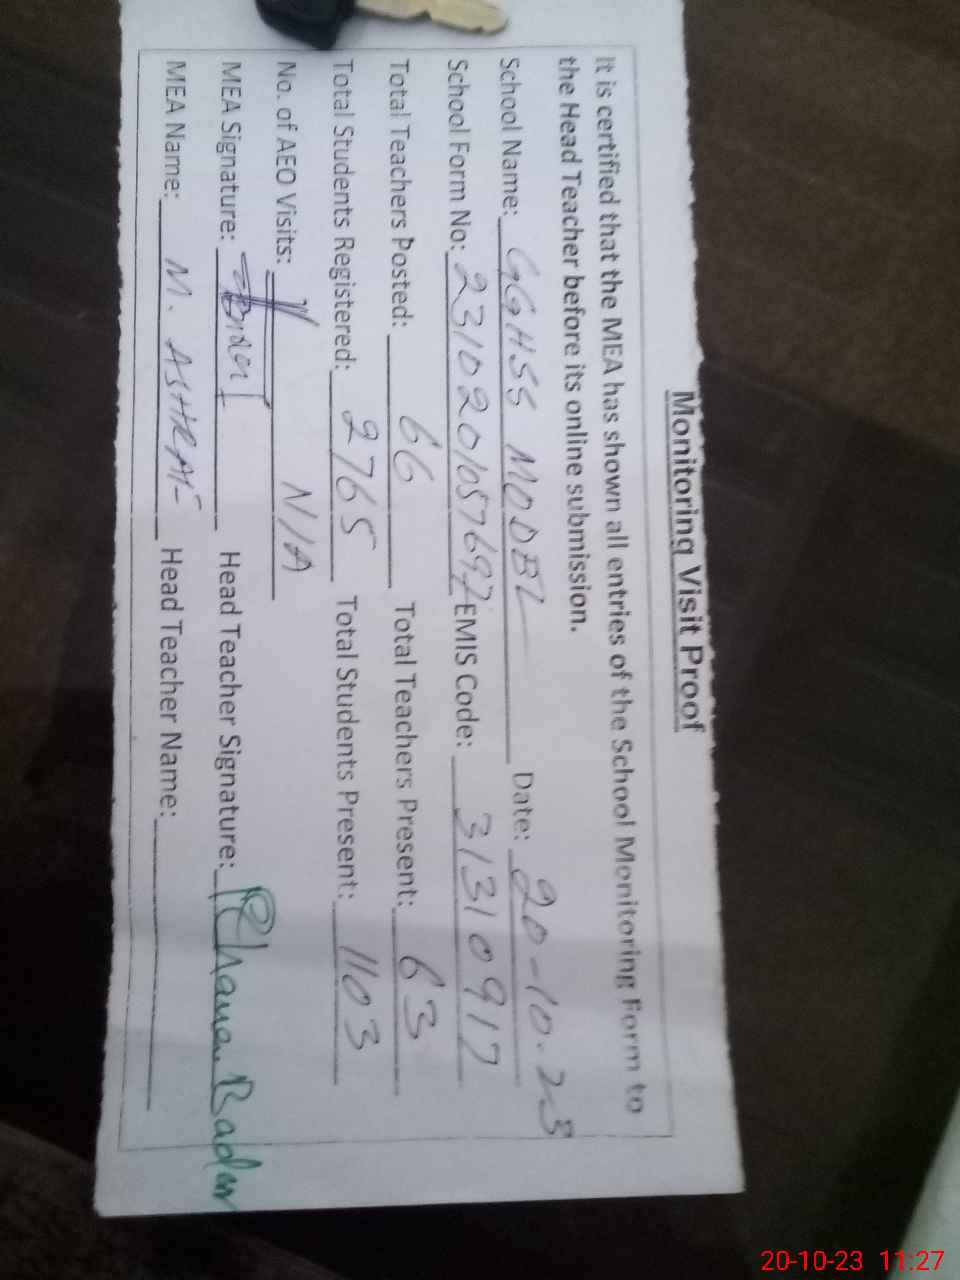 Monitoring Visit Proof
It is certified that the MEA has shown all entries of the School Monitoring Form to
the Head Teacher before its online submission.
School Name: GGHSS MODEL Date: 20-10-23
School Form No: 2310201057697 EMIS Code: 31310917
Total Teachers Posted: 66 Total Teachers Present: 63
Total Students Registered: 2765 Total Students Present: 1103
No. of AEO Visits: N/A
MEA Signature: Head Teacher Signature:
MEA Name: M. ASHRAF Head Teacher Name:
20-10-23 11:27